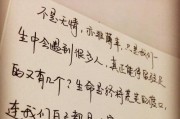 不是无情，亦非薄幸，只是我们一
生中会遇到很多人，真正能停留驻足
的又有几个？生命是终将荒芜的渡口，
连我们自己都是